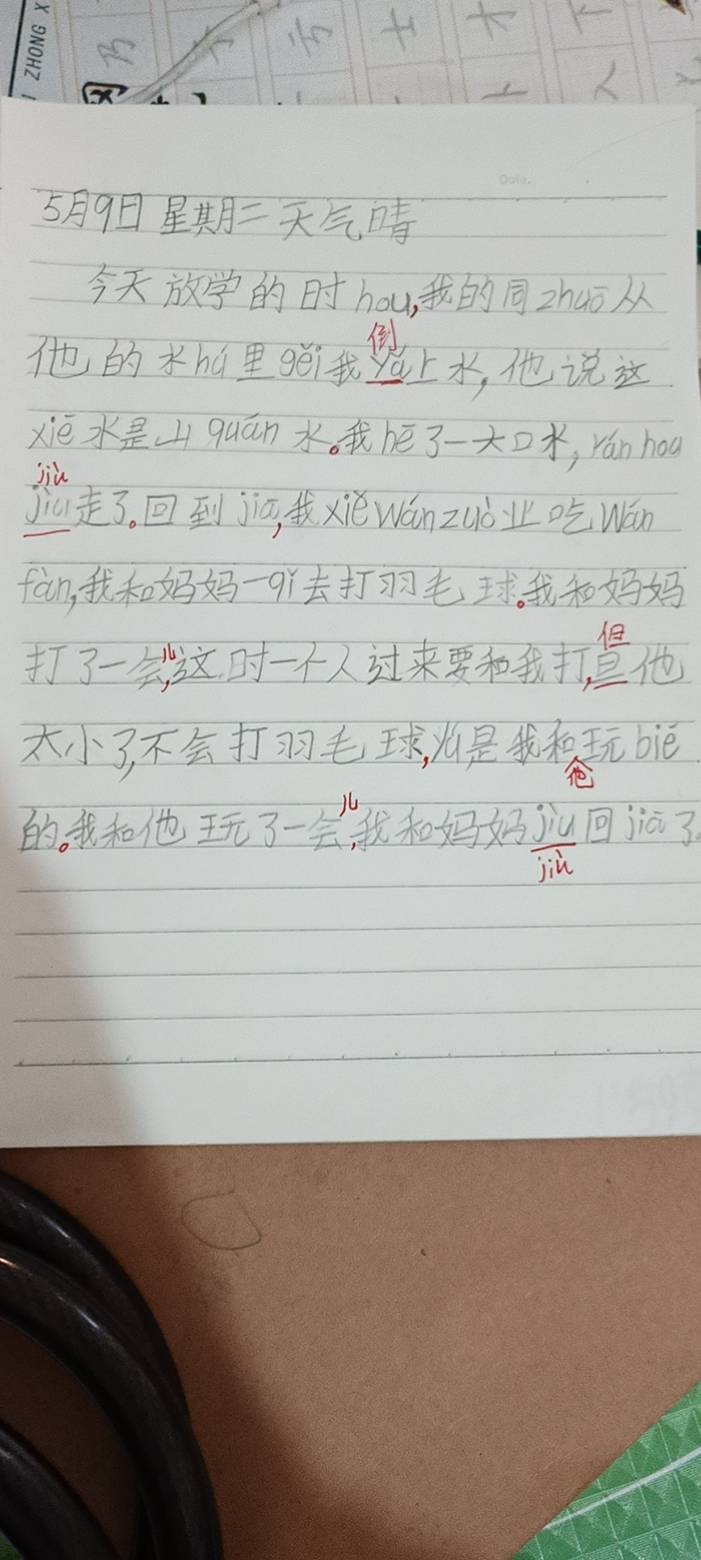 ZHONG X
Date.
5月9日 星期二 天气晴
今天放学的时hou,我的同zhuō从
倒
他的水hú里gěi我yǎ上水,他说这
xiē水是山quán水。我hē了一大口水,rán hou
jiù
jiù走了。回到jiā,我xiě wán zuò业吃wǎn
fàn,我和妈妈一qǐ去打羽毛球。我和妈妈
但
打了一会儿,这时一个人过来要和我打,旦他
太小了,不会打羽毛球,yú是我和玩bié
他
儿
的。我和他玩了一会,我和妈妈jìu回jiā了。
jiù